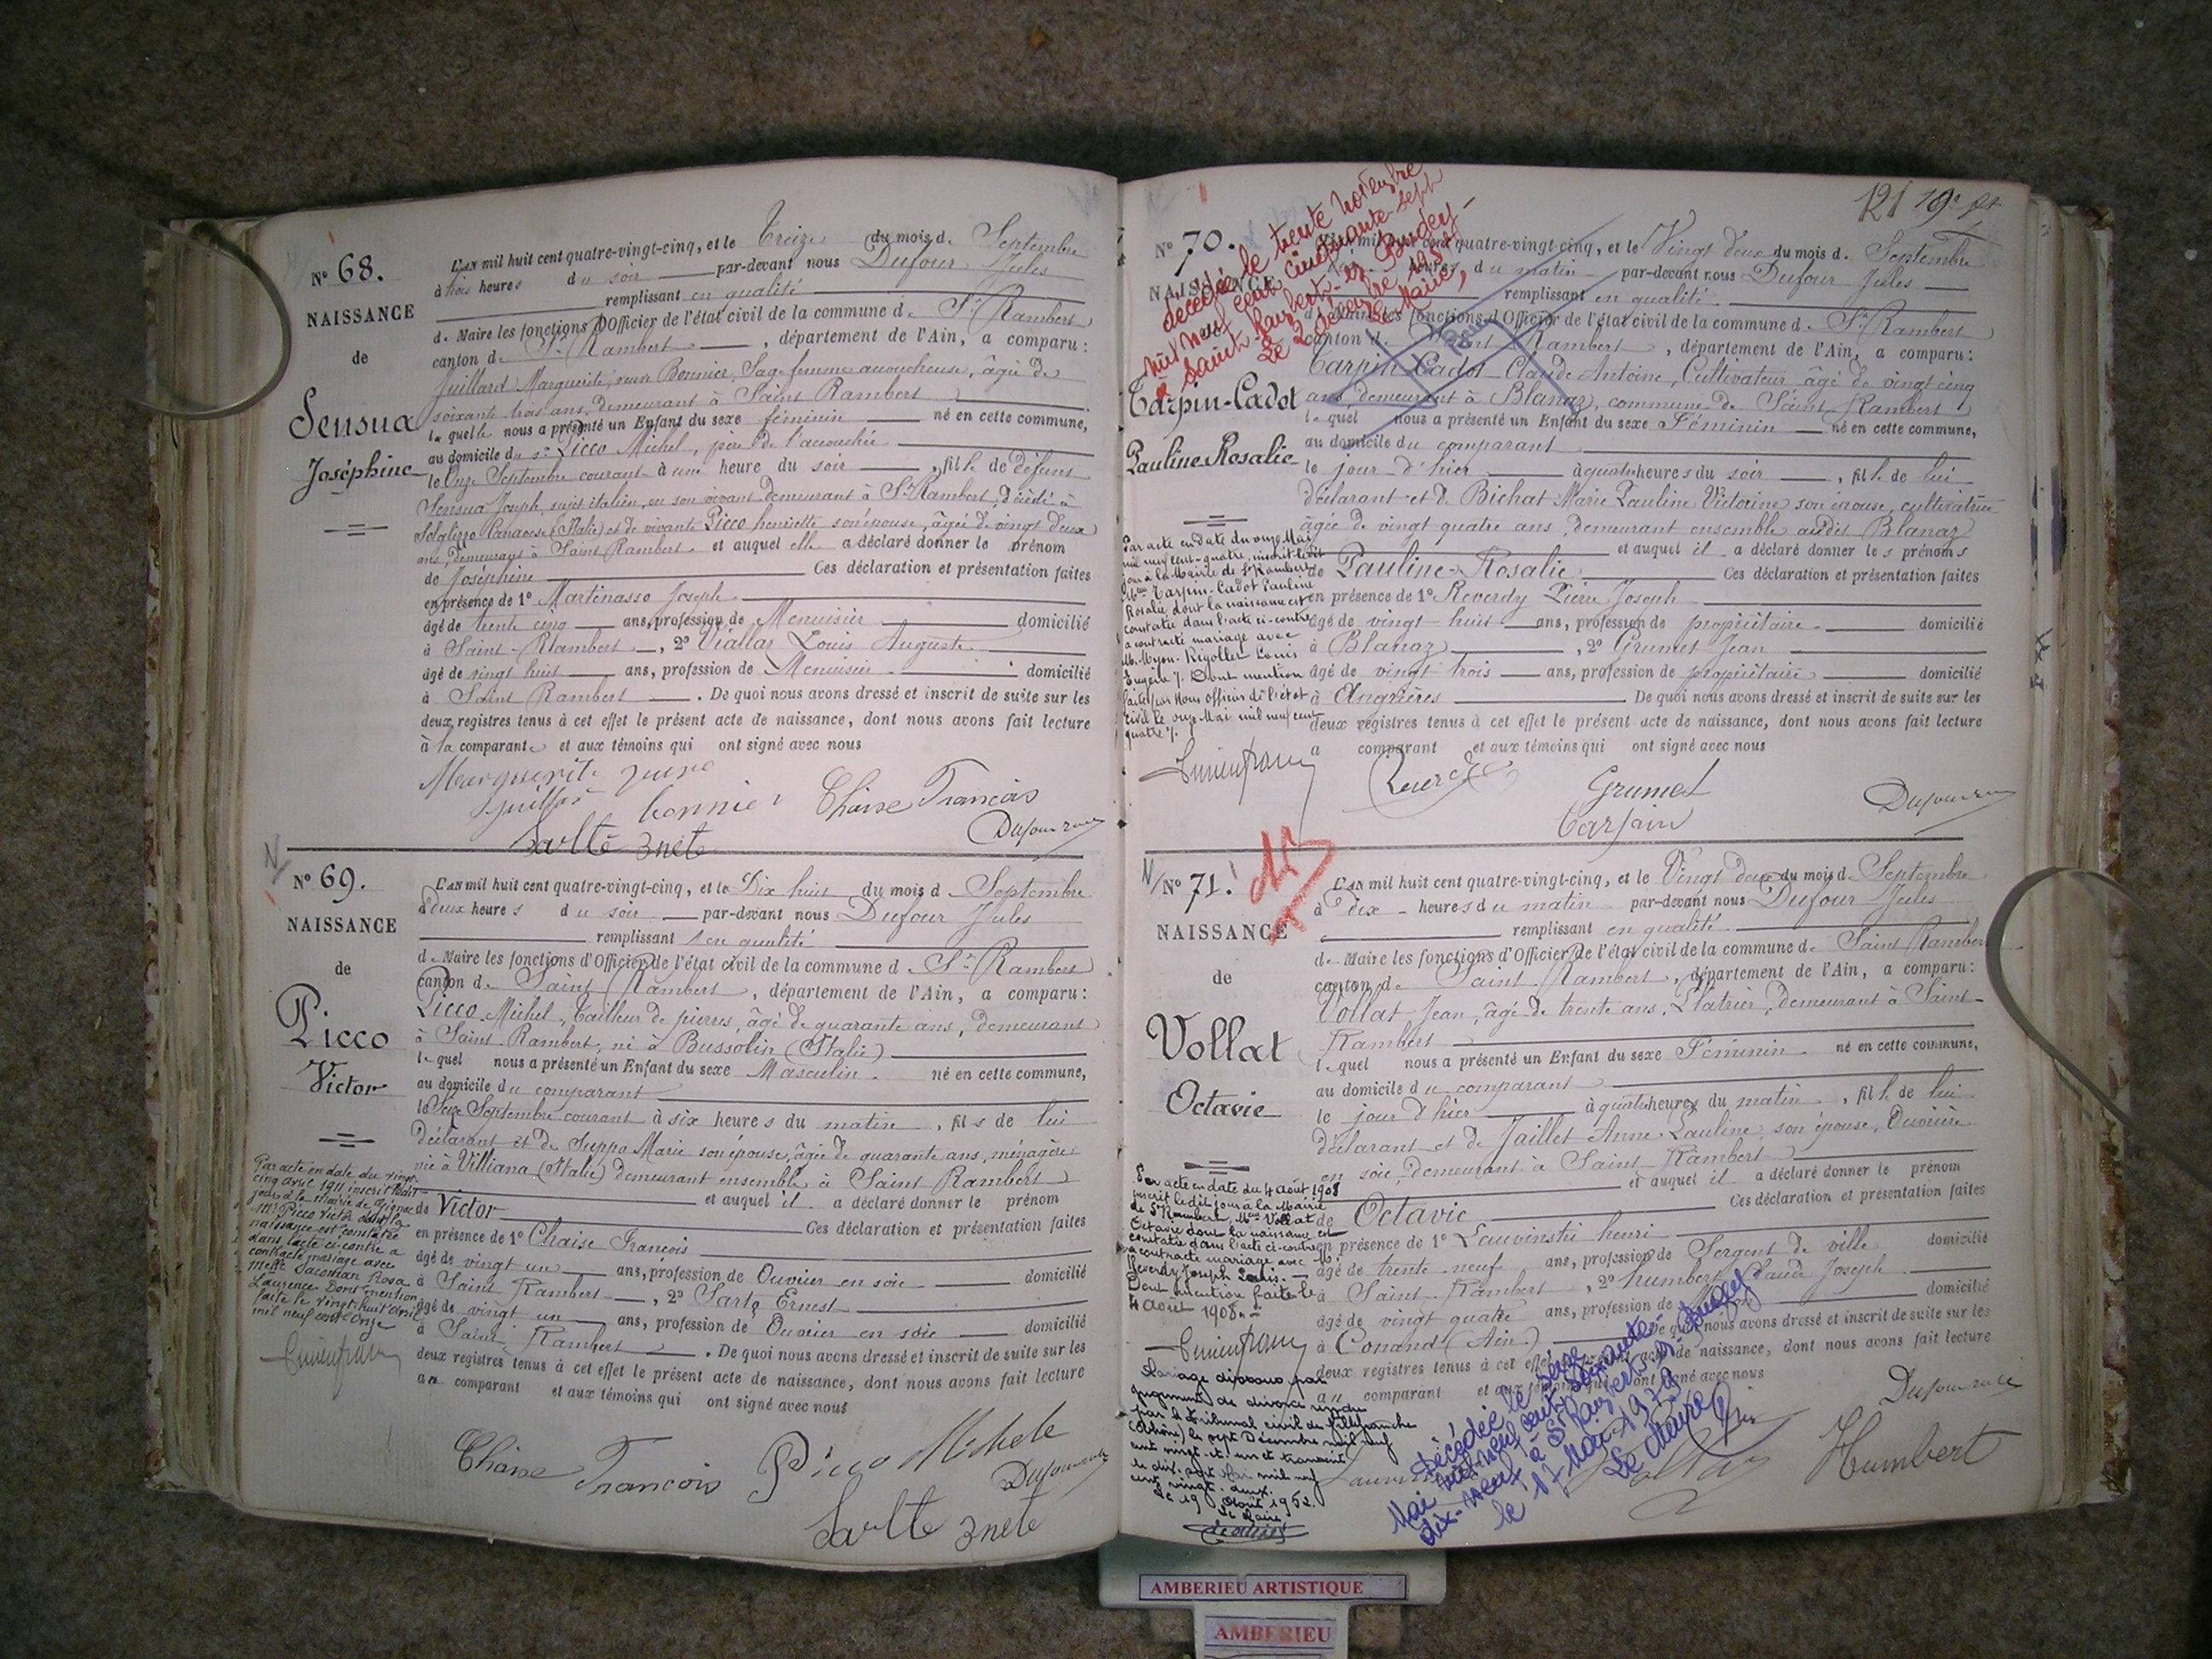 N° 68.
NAISSANCE
de
Sensua
Joséphine
L'an mil huit cent quatre-vingt-cinq, et le Treize du mois de Septembre
à trois heures du soir par-devant nous Dufour Jules
remplissant en qualité
de Maire les fonctions d'Officier de l'état civil de la commune de St Rambert
canton de St Rambert, département de l'Ain, a comparu:
Juillard Marguerite, veuve Bonnier, Sage femme accoucheuse, âgée de
soixante trois ans, demeurant à Saint Rambert
laquelle nous a présenté un Enfant du sexe féminin né en cette commune,
au domicile du sr Picco Michel, père de l'accouchée
le Onze Septembre courant à une heure du soir, fille de défunt
Sensua Joseph, sujet italien, en son vivant demeurant à St Rambert, décédé à
(Italie) et de vivante Picco henriette son épouse, âgée de vingt deux
ans, demeurant à Saint Rambert et auquel elle a déclaré donner le prénom
de Joséphine Ces déclaration et présentation faites
en présence de 1° Martinasso Joseph
âgé de trente cinq ans, profession de Menuisier domicilié
à Saint-Rambert, 2° Viallar Louis Auguste
âgé de vingt huit ans, profession de Menuisier domicilié
à Saint Rambert. De quoi nous avons dressé et inscrit de suite sur les
deux registres tenus à cet effet le présent acte de naissance, dont nous avons fait lecture
à la comparante et aux témoins qui ont signé avec nous
Marguerite
bonnier Chaise François
Dufour
N° 69.
NAISSANCE
de
Picco
Victor
L'an mil huit cent quatre-vingt-cinq, et le Dix huit du mois d Septembre
à deux heures du soir par-devant nous Dufour Jules
remplissant en qualité
de Maire les fonctions d'Officier de l'état civil de la commune de St Rambert
canton de Saint Rambert, département de l'Ain, a comparu:
Picco Michel, Tailleur de pierres, âgé de quarante ans, demeurant
à Saint-Rambert, né à Bussolin (Italie)
lequel nous a présenté un Enfant du sexe Masculin né en cette commune,
au domicile du comparant
le Seize Septembre courant à six heures du matin, fils de lui
déclarant et de Suppo Marie son épouse, âgée de quarante ans, ménagère
née à Villiana (Italie) demeurant ensemble à Saint Rambert
et auquel il a déclaré donner le prénom
de Victor Ces déclaration et présentation faites
en présence de 1° Chaise François
âgé de vingt un ans, profession de Ouvrier en soie domicilié
à Saint Rambert, 2° Sarto Ernest
âgé de vingt un ans, profession de Ouvrier en soie domicilié
à Saint Rambert. De quoi nous avons dressé et inscrit de suite sur les
deux registres tenus à cet effet le présent acte de naissance, dont nous avons fait lecture
au comparant et aux témoins qui ont signé avec nous
Par acte en date du vingt-
cinq avril 1911 inscrit ledit
jour à la Mairie de
Mr Picco Victor dont la
naissance est constatée
dans l'acte ci-contre a
contracté mariage avec
Melle Jacomian Rosa
Laurence. Dont mention
faite le vingt-huit avril
mil neuf cent onze
Chaise François Picco Michele
Dufour
121
N° 70.
NAISSANCE
Tarpin-Cadot
Pauline Rosalie
décédée le trente Novembre
mil neuf cent cinquante-sept
à Saint Rambert-en-Bugey
Le 2 décembre 1957
Le Maire,
L'an mil huit cent quatre-vingt-cinq, et le Vingt deux du mois d. Septembre
heures du matin par-devant nous Dufour Jules
remplissant en qualité
de Maire les fonctions d'Officier de l'état civil de la commune d. St Rambert
canton de Saint Rambert, département de l'Ain, a comparu:
Tarpin-Cadot Claude Antoine, Cultivateur âgé de vingt cinq
ans, demeurant à Blanaz, commune de Saint Rambert
lequel nous a présenté un Enfant du sexe Féminin né en cette commune,
au domicile du comparant
le jour d'hier à quatre heures du soir, fille de lui
déclarant et de Bichat Marie Pauline Victorine son épouse, cultivatrice
âgée de vingt quatre ans, demeurant ensemble audit Blanaz
et auquel il a déclaré donner les prénoms
de Pauline-Rosalie Ces déclaration et présentation faites
en présence de 1° Reverdy Pierre Joseph
âgé de vingt-huit ans, profession de propriétaire domicilié
à Blanaz, 2° Grumet Jean
âgé de vingt trois ans, profession de propriétaire domicilié
à Angrières De quoi nous avons dressé et inscrit de suite sur les
deux registres tenus à cet effet le présent acte de naissance, dont nous avons fait lecture
a comparant et aux témoins qui ont signé avec nous
Par acte en date du onze Mai
mil neuf cent-quatre, inscrit ledit
jour à la Mairie de St Rambert
Melle Tarpin-Cadot Pauline
Rosalie dont la naissance est
constatée dans l'acte ci-contre
a contracté mariage avec
M. Myon-Rigollet Louis
Eugène. Dont mention
faite par Nous officier de l'état
civil le onze Mai mil neuf cent
quatre
Grumet
Tarpin
Dufour
N° 71.
NAISSANCE
de
Vollat
Octavie
L'an mil huit cent quatre-vingt-cinq, et le Vingt deux du mois d Septembre
à dix heures du matin par-devant nous Dufour Jules
remplissant en qualité
de Maire les fonctions d'Officier de l'état civil de la commune de Saint Rambert
canton de Saint Rambert, département de l'Ain, a comparu:
Vollat Jean, âgé de trente ans, Plâtrier, demeurant à Saint-
Rambert
lequel nous a présenté un Enfant du sexe Féminin né en cette commune,
au domicile du comparant
le jour d'hier à quatre heures du matin, fille de lui
déclarant et de Jaillet Anne Pauline, son épouse, Ouvrière
en soie, demeurant à Saint-Rambert
et auquel il a déclaré donner le prénom
de Octavie Ces déclaration et présentation faites
en présence de 1° Lauvinski henri
âgé de trente neuf ans, profession de Sergent de ville domicilié
à Saint Rambert, 2° humbert Claude Joseph
âgé de vingt quatre ans, profession de domicilié
à Conand (Ain) De quoi nous avons dressé et inscrit de suite sur les
deux registres tenus à cet effet le présent acte de naissance, dont nous avons fait lecture
au comparant et aux témoins qui ont signé avec nous
Par acte en date du 4 Août 1908
inscrit ledit jour à la Mairie
de St Rambert, Melle Vollat
Octavie dont la naissance est
constatée dans l'acte ci-contre
a contracté mariage avec Mr
Reverdy Joseph Louis.
Dont mention faite le
4 août 1908.
Mariage dissous par
jugement de divorce rendu
par le Tribunal civil de Villefranche
(Rhône) le sept Décembre mil neuf
cent vingt-et-un et transcrit
le dix-sept Mai mil neuf
cent vingt-deux.
Le 19 Août 1952.
Le Maire
Décédée le seize
Mai mil neuf cent soixante-
dix-neuf à St Rambert-en-Bugey
le 17 Mai 1979
Le Maire
Vollat
Humbert
Dufour
AMBERIEU ARTISTIQUE
AMBERIEU